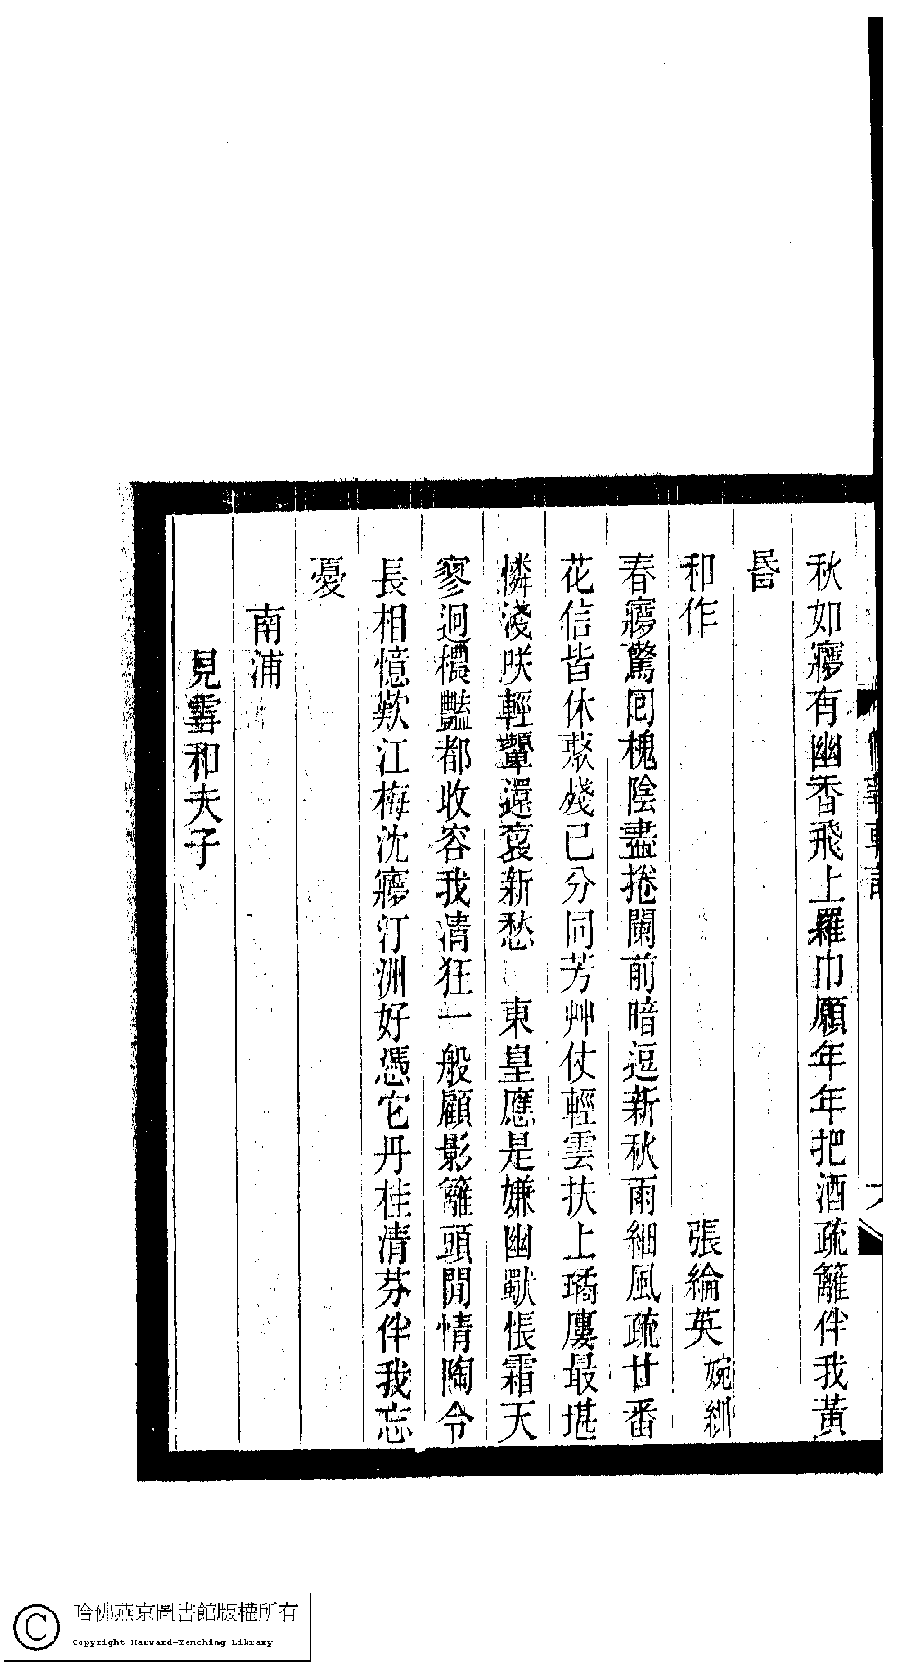 秋如寱有幽香飛上羅巾願年年把酒疏籬伴我黃
昏
和作　張綸英 婉紃
春寱驚回槐陰盡捲闌前暗逗新秋雨細風疏廿番
花信皆休殘已分同芳艸仗輕雲扶上璚廔最堪
憐淺咲輕顰還裛新愁　東皇應是嫌幽獸悵霜天
寥迥穠豔都收容我清狂一般顧影籬頭閒情陶令
長相憶歎江梅沈寱汀洲好憑它丹桂清芬伴我忘
憂
南浦
見雪和夫子
哈佛燕京圖書館版權所有
Copyright Harvard-Yenching Library